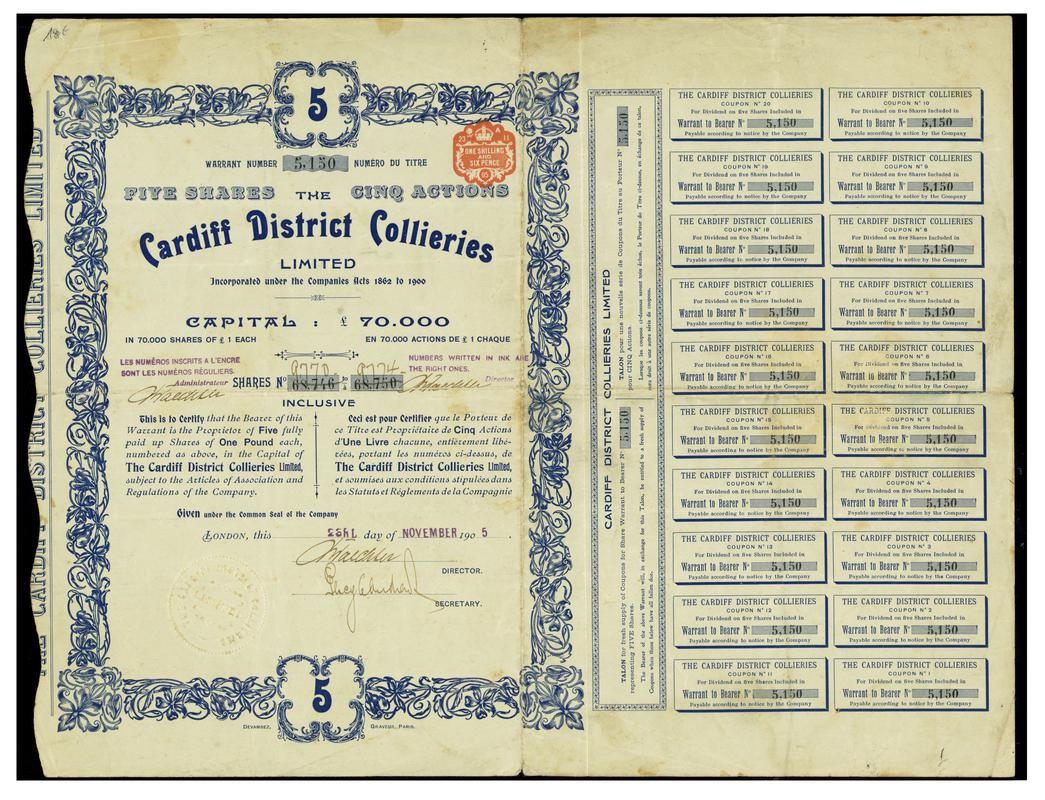 THE CARDIFF DISTRICT COLLIERIES LIMITED
5
23 11
ONE SHILLING
AND
SIX PENCE
05
WARRANT NUMBER 5,150 NUMÉRO DU TITRE
FIVE SHARES THE CINQ ACTIONS
Cardiff District Collieries
LIMITED
Incorporated under the Companies Acts 1862 to 1900
CAPITAL : £ 70.000
IN 70.000 SHARES OF £ 1 EACH
EN 70.000 ACTIONS DE £ 1 CHAQUE
LES NUMÉROS INSCRITS A L'ENCRE
SONT LES NUMÉROS RÉGULIERS.
Administrateur
NUMBERS WRITTEN IN INK ARE
THE RIGHT ONES.
Director
9770 9774
SHARES Nº 68,746 to à 68,750
INCLUSIVE
This is to Certify that the Bearer of this
Warrant is the Proprietor of Five fully
paid up Shares of One Pound each,
numbered as above, in the Capital of
The Cardiff District Collieries Limited,
subject to the Articles of Association and
Regulations of the Company.
Ceci est pour Certifier que le Porteur de
ce Titre est Propriétaire de Cinq Actions
d'Une Livre chacune, entièrement libé-
rées, portant les numéros ci-dessus, de
The Cardiff District Collieries Limited,
et soumises aux conditions stipulées dans
les Statuts et Réglements de la Compagnie
Given under the Common Seal of the Company
LONDON, this 28th day of NOVEMBER 190 5 .
DIRECTOR.
SECRETARY.
5
DEVAMBEZ, GRAVEUR, PARIS.
CARDIFF DISTRICT COLLIERIES LIMITED
TALON for fresh supply of Coupons for Share Warrant to Bearer Nº 5,150
representing FIVE Shares.
The Bearer of the above Warrant will, in exchange for this Talon, be entitled to a fresh supply of
Coupons when those below have all fallen due.
TALON pour une nouvelle série de Coupons du Titre au Porteur Nº 5,150
pour CINQ Actions.
Lorsque les coupons ci-dessous seront tous échus, le Porteur de Titre ci-dessus, en échange de ce talon,
aura droit à une autre série de coupons.
THE CARDIFF DISTRICT COLLIERIES
COUPON Nº 20
For Dividend on five Shares Included in
Warrant to Bearer Nº 5,150
Payable according to notice by the Company
THE CARDIFF DISTRICT COLLIERIES
COUPON Nº 10
For Dividend on five Shares Included in
Warrant to Bearer Nº 5,150
Payable according to notice by the Company
THE CARDIFF DISTRICT COLLIERIES
COUPON Nº 19
For Dividend on five Shares Included in
Warrant to Bearer Nº 5,150
Payable according to notice by the Company
THE CARDIFF DISTRICT COLLIERIES
COUPON Nº 9
For Dividend on five Shares Included in
Warrant to Bearer Nº 5,150
Payable according to notice by the Company
THE CARDIFF DISTRICT COLLIERIES
COUPON Nº 18
For Dividend on five Shares Included in
Warrant to Bearer Nº 5,150
Payable according to notice by the Company
THE CARDIFF DISTRICT COLLIERIES
COUPON Nº 8
For Dividend on five Shares Included in
Warrant to Bearer Nº 5,150
Payable according to notice by the Company
THE CARDIFF DISTRICT COLLIERIES
COUPON Nº 17
For Dividend on five Shares Included in
Warrant to Bearer Nº 5,150
Payable according to notice by the Company
THE CARDIFF DISTRICT COLLIERIES
COUPON Nº 7
For Dividend on five Shares Included in
Warrant to Bearer Nº 5,150
Payable according to notice by the Company
THE CARDIFF DISTRICT COLLIERIES
COUPON Nº 16
For Dividend on five Shares Included in
Warrant to Bearer Nº 5,150
Payable according to notice by the Company
THE CARDIFF DISTRICT COLLIERIES
COUPON Nº 6
For Dividend on five Shares Included in
Warrant to Bearer Nº 5,150
Payable according to notice by the Company
THE CARDIFF DISTRICT COLLIERIES
COUPON Nº 15
For Dividend on five Shares Included in
Warrant to Bearer Nº 5,150
Payable according to notice by the Company
THE CARDIFF DISTRICT COLLIERIES
COUPON Nº 5
For Dividend on five Shares Included in
Warrant to Bearer Nº 5,150
Payable according to notice by the Company
THE CARDIFF DISTRICT COLLIERIES
COUPON Nº 14
For Dividend on five Shares Included in
Warrant to Bearer Nº 5,150
Payable according to notice by the Company
THE CARDIFF DISTRICT COLLIERIES
COUPON Nº 4
For Dividend on five Shares Included in
Warrant to Bearer Nº 5,150
Payable according to notice by the Company
THE CARDIFF DISTRICT COLLIERIES
COUPON Nº 13
For Dividend on five Shares Included in
Warrant to Bearer Nº 5,150
Payable according to notice by the Company
THE CARDIFF DISTRICT COLLIERIES
COUPON Nº 3
For Dividend on five Shares Included in
Warrant to Bearer Nº 5,150
Payable according to notice by the Company
THE CARDIFF DISTRICT COLLIERIES
COUPON Nº 12
For Dividend on five Shares Included in
Warrant to Bearer Nº 5,150
Payable according to notice by the Company
THE CARDIFF DISTRICT COLLIERIES
COUPON Nº 2
For Dividend on five Shares Included in
Warrant to Bearer Nº 5,150
Payable according to notice by the Company
THE CARDIFF DISTRICT COLLIERIES
COUPON Nº 11
For Dividend on five Shares Included in
Warrant to Bearer Nº 5,150
Payable according to notice by the Company
THE CARDIFF DISTRICT COLLIERIES
COUPON Nº 1
For Dividend on five Shares Included in
Warrant to Bearer Nº 5,150
Payable according to notice by the Company